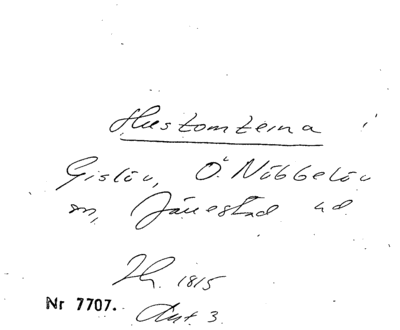 Hustomterna i
Gislöv, Ö. Nöbbelöv
sn, Järrestad hd.
Ih. 1815
Nr 7707. Ant. 3.